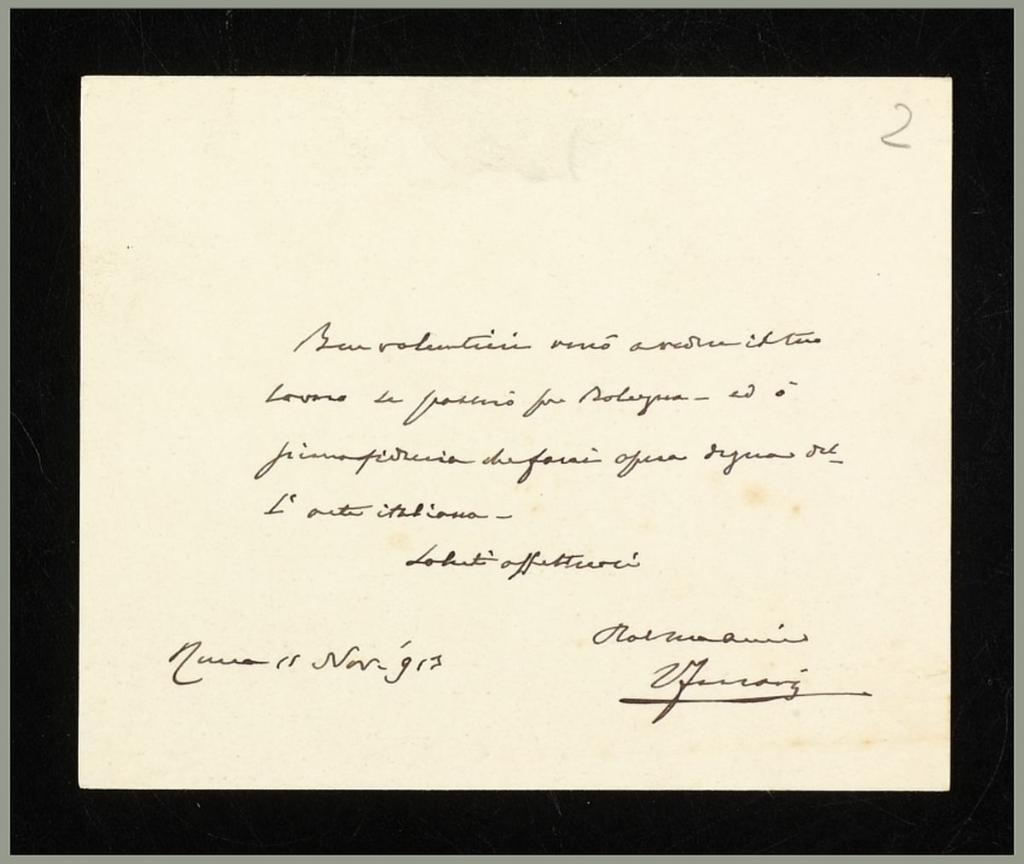 2
Ben volentieri verrò a vedere il tuo
lavoro se passerò per Bologna - ed ò
piena fiducia che farai opera degna del-
l'arte italiana -
Saluti affettuosi
Roma 15 Nov. 913
VFerrari